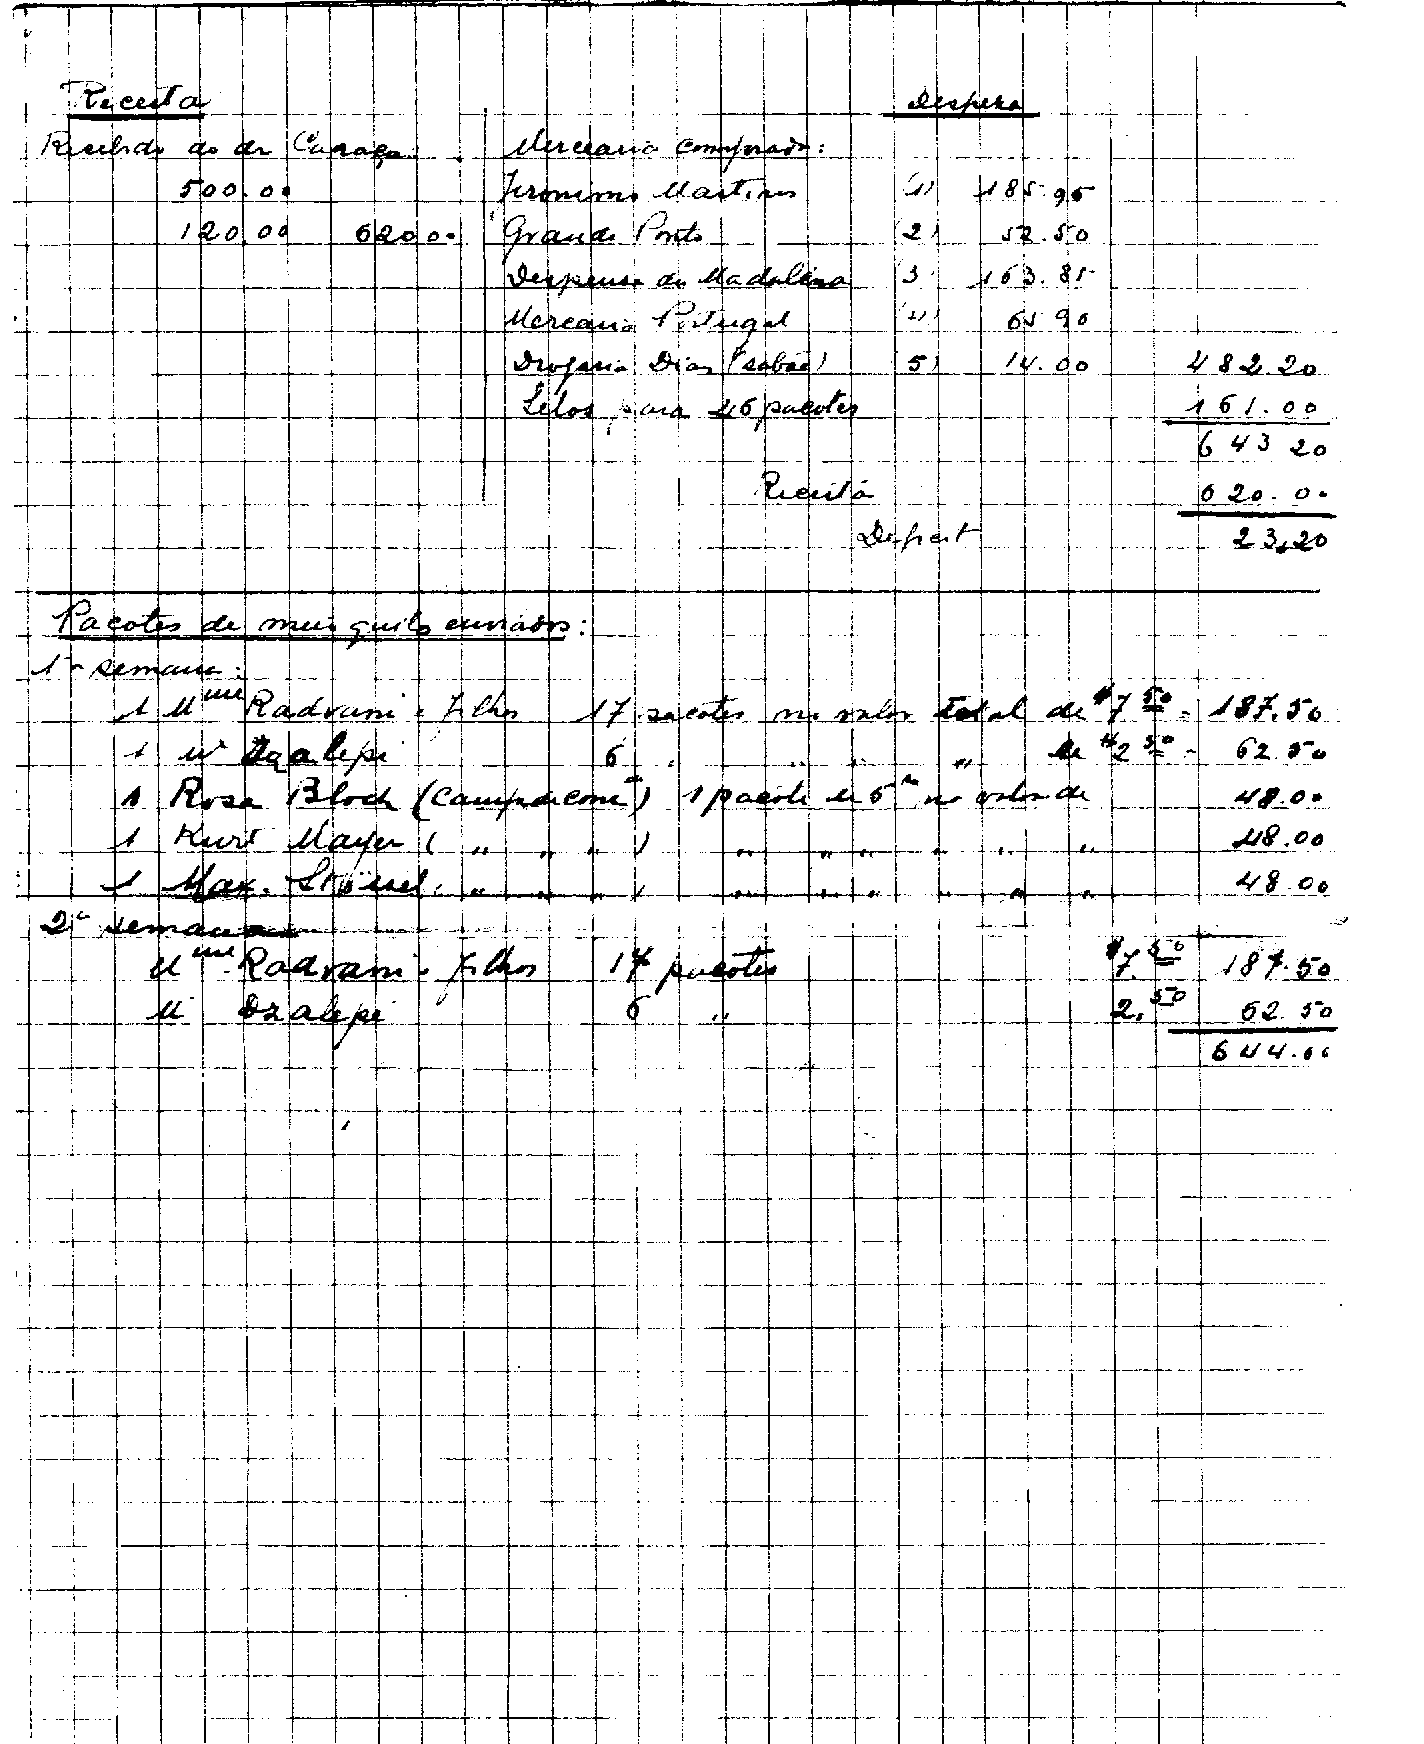 Receita
Despeza
Recebido do dr Caraça
Mercearia comprada:
500.00
Jeronimo Martins (1) 185.95
120.00 620 00
Grande Ponto (2) 52.50
Despensa da Madalena (3) 163.85
Mercearia Portugal (4) 65 90
Drogaria Dias (sabão) (5) 14.00 482.20
Selos para 46 pacotes 161.00
643 20
Receita 620.00
23,20
Pacotes de meio quilo enviados:
1ª semana:
1 Mme Radvani e filhos 17 pacotes no valor total de $7 50 - 187.50
1 Mr Dzalepi 6 " " " " de $2 50 - 62.50
1 Rosa Bloch (Camp de conc) 1 pacote de 5 no valor de 48.00
1 Kurt Mayer ( " " " ) " " " " " " 48.00
1 Max. " " " ) " " " " " " 48.00
2ª semana
Mme Radvani e filhos 17 pacotes $7.50 187.50
M Dzalepi 6 " 2.50 62.50
644.00